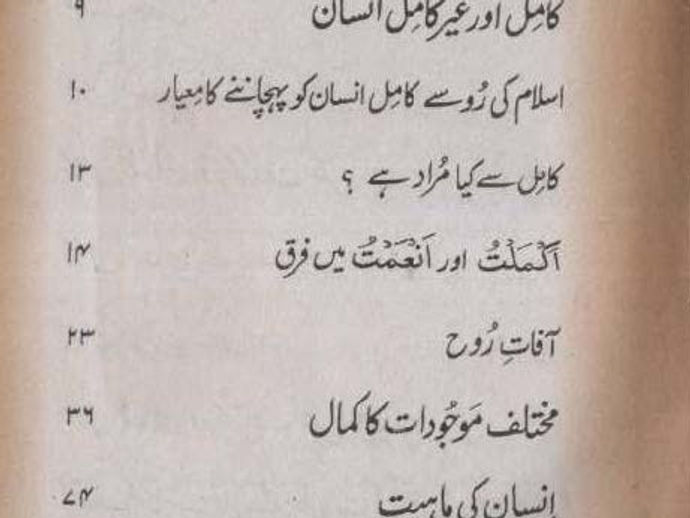 کامِل اور غیر کامِل انسان ۹
اسلام کی رُو سے کامِل انسان کو پہچاننے کا مِعیار ۱۰
کامِل سے کیا مُراد ہے ؟ ۱۳
اَکْمَلْتُ اور اَنْعَمْتُ میں فرق ۱۴
آفاتِ رُوح ۲۳
مختلف مَوجُودات کا کمال ۳۶
اِنسان کی ماہیت ۷۴